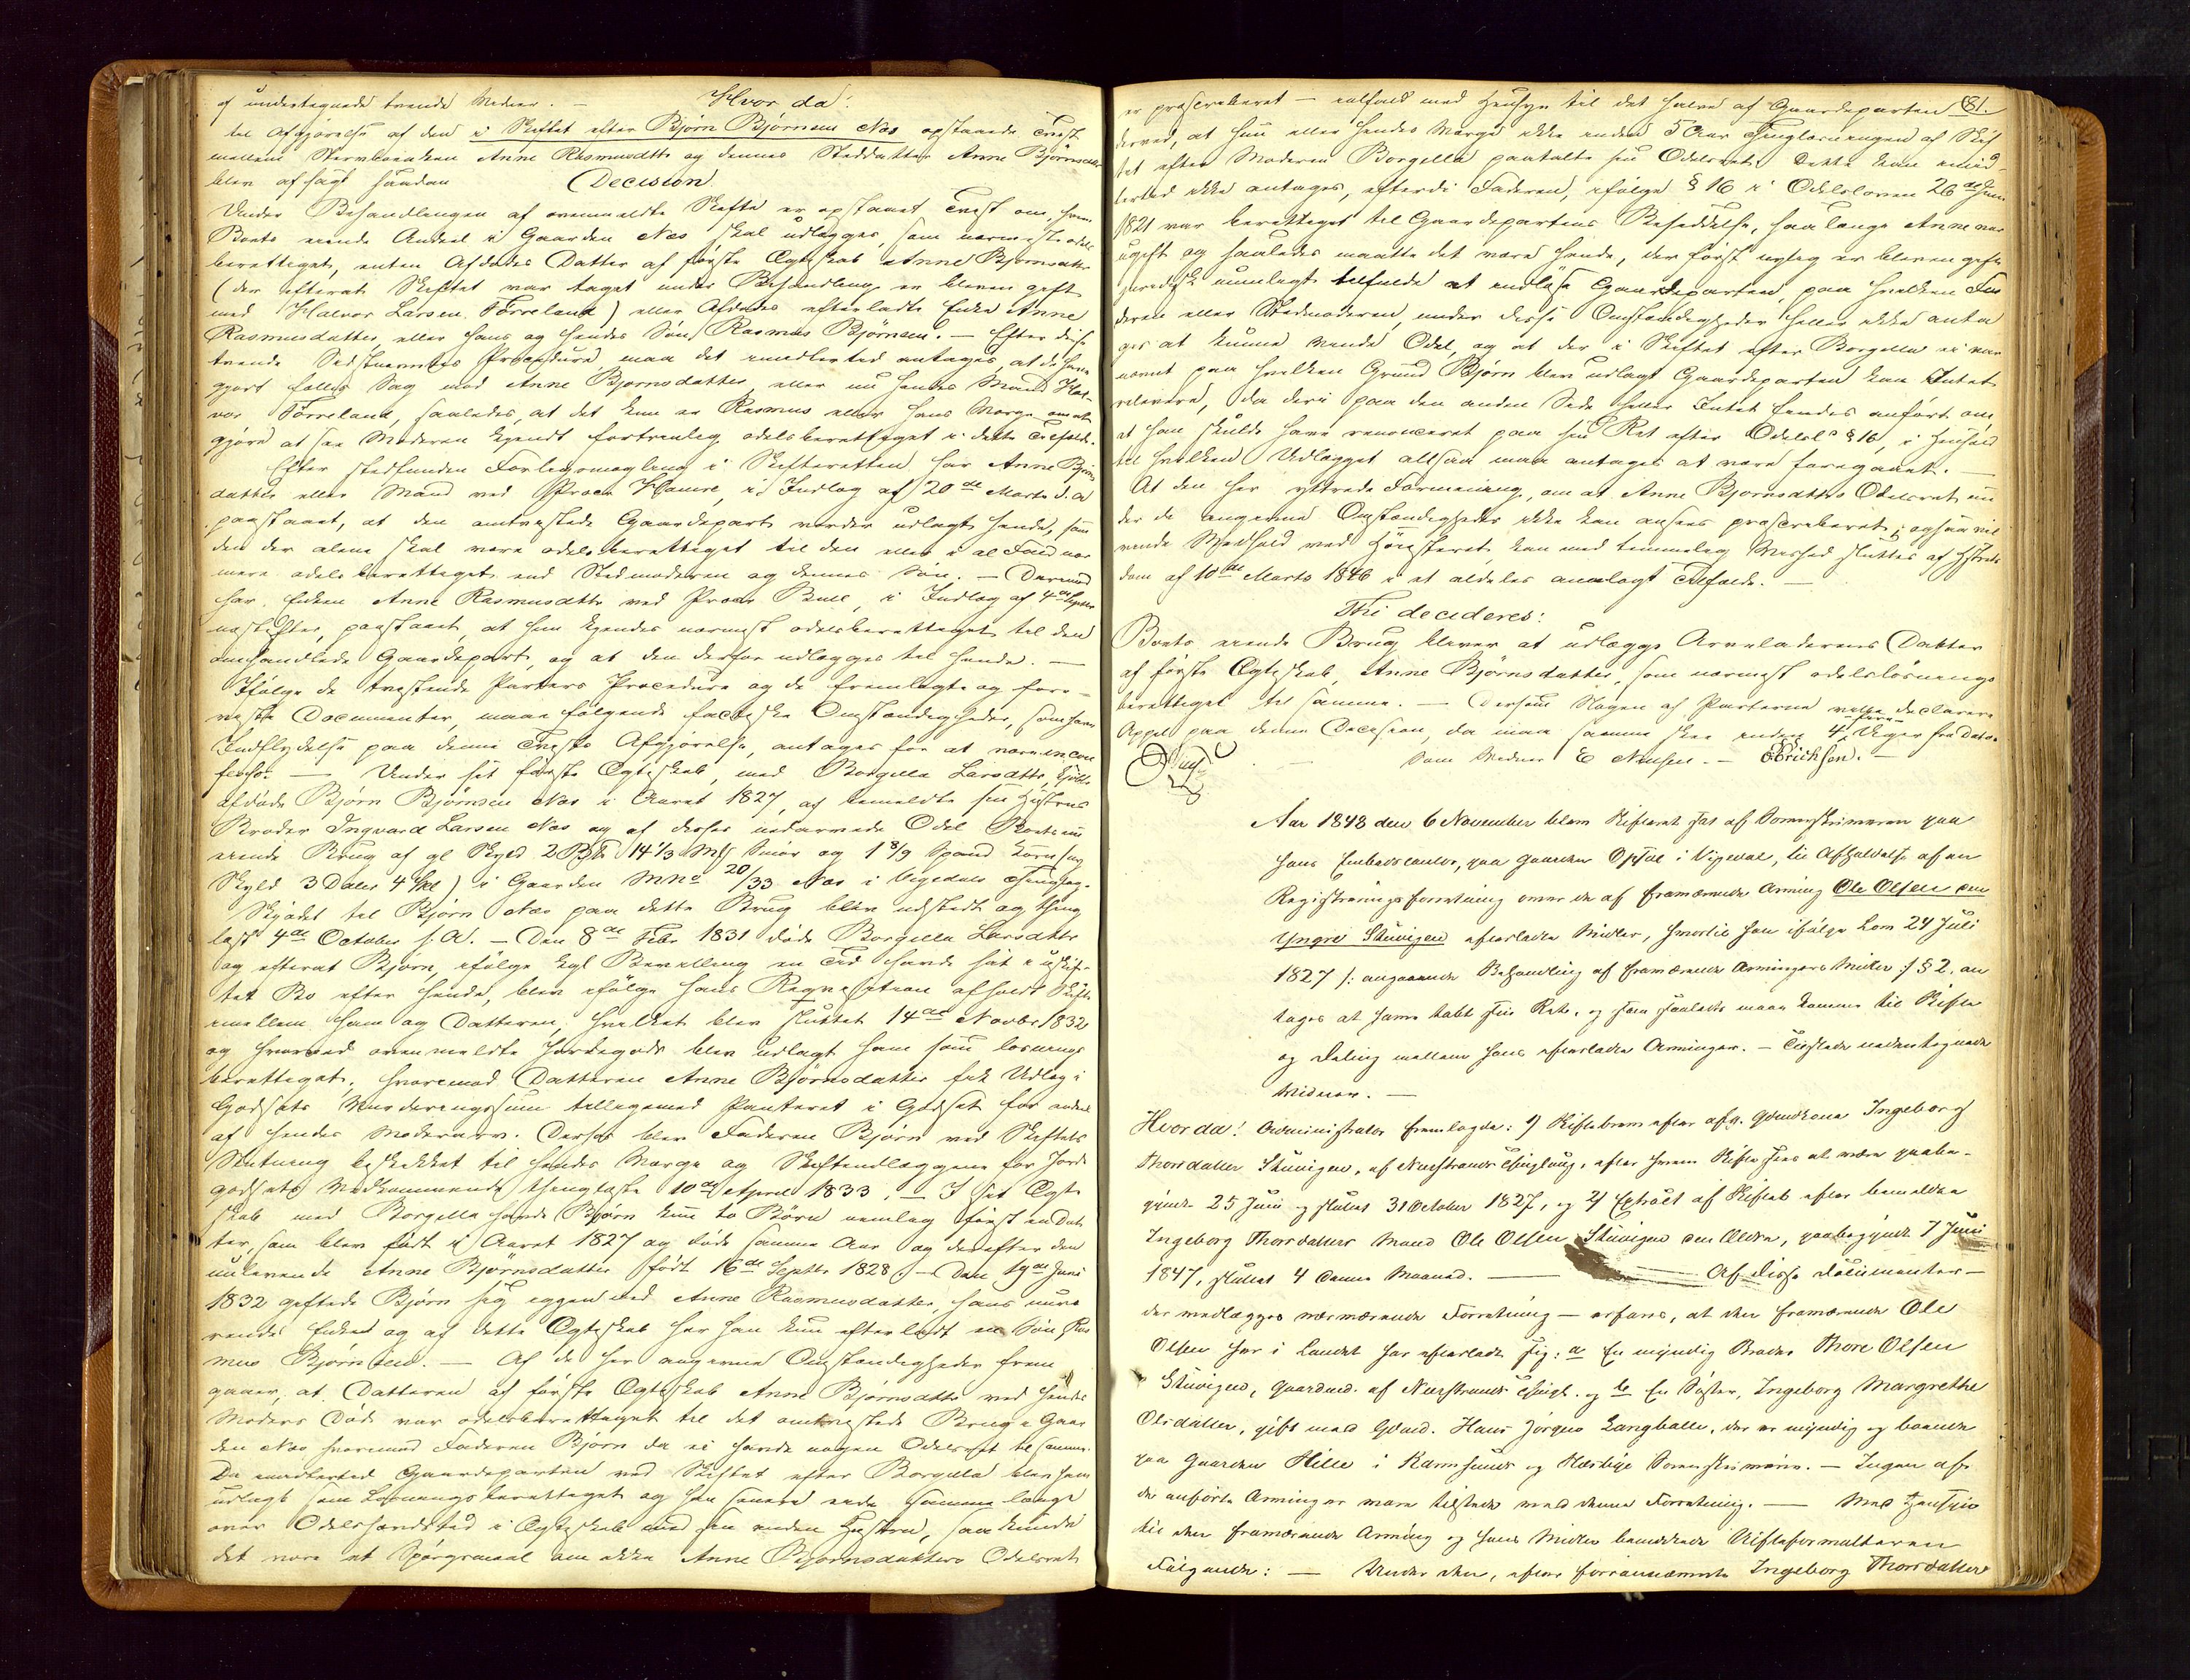 af undertegnede tvende Vidner. — Hvor da:
til Afgjørelse af den i Skiftet efter Bjørn Bjørnsen Næs opstaaede Tvist
mellem Stervboenken Anne Rasmusdtr og dennes Steddatter Anne Bjørnsdtr
blev afsagt saadan Decision
Under Behandlingen af ovenmeldte Skifte er opstaaet Tvist om, hvem
Boets eiende Andeel i Gaarden Næs skal udlægges, som nærmeste odels
berettiget, enten Afdødes Datter af første Ægteskab Anne Bjørnsdatter
(der efterat Skiftet var taget under Behandling er bleven gift
med Halvor Larsen Førreland) eller Afdødes efterladte Enke Anne
Rasmusdatter, eller hans og hendes Søn Rasmus Bjørnsen. — Efter disse
tvende Procedure, maa det imidlertid antages, at de have
gjort fælles Sag mod Anne Bjørnsdatter, eller nu hendes Mand Hal-
vor Førreland, saaledes, at det kun er Rasmus eller hans Værge om at
gjøre at faa Moderen kjendt fortrinlig odelsberettiget i dette Tilfælde.
Efter stedfunden Forligsmægling i Skifteretten har Anne Bjørns
datter eller Mand ved Procr Hamre, i Indlæg af 20de Marts d. A.
paastaaet, at den omtvistede Gaardepart vorder udlagt hende, som
den der alene skal være odelsberettiget til den eller i al Fald nær
mere odelsberettiget end Stedmoderen og dennes Søn. — Derimod
har Enken Anne Rasmusdtr ved Procr Bull, i Indlæg af 4de
næstefter, paastaaet, at hun kjendes nærmest odelsberettiget til den
omhandlede Gaardepart, og at den derfor udlægges til hende. —
Ifølge de tvistende Parters Procedure og de fremlagte og fore-
viste Documenter, maae følgende factiske Omstændigheder, som have
Indflydelse paa denne Tvists Afgjørelse, antages for at være in con
fesso: — Under sit første Ægteskab, med Borgilla Larsdtr, kjøbte
afdøde Bjørn Bjørnsen Næs i Aaret 1827, af bemeldte sin Hustrues
Broder Ingvard Larsen Næs og af dennes nedarvede Odel Boets nu
eiende Brug af gl Skyld 2 Bpd 14 1/3 Mk Smør og 1 8/9 Spand Korn (ny
Skyld 3 Daler 4 Skl) i Gaarden M No 20/33 Næs i Vigedals Thinglag.
Skjødet til Bjørn Næs paa dette Brug blev udstedt og thing
læst 4de October s. A. — Den 8de Febr 1831 døde Borgilla Larsdtr
og efterat Bjørn, ifølge kgl Bevilling en Tid havde sat i uskif-
tet Bo efter hende, blev ifølge hans Reqvisition afholdt Skifte
imellem ham og Datteren, hvilket blev sluttet 14de Novbr 1832
og hvorved ovenmeldte Jordegods blev udlagt ham som løsnings
berettiget, hvorimod Datteren Anne Bjørnsdatter fik Udlæg i
Godsets Vurderingssum tilligemed Panteret i Godset for
af hendes Mødrenarv. Derpaa blev Faderen Bjørn ved Skiftets
Slutning beskikket til hendes Værge og Skifteudlæggene for Jorde
godsets Vedkommende thinglæste 10de April 1833. — I sit Ægte
skab med Borgilla havde Bjørn kun to Børn nemlig først en Dat
ter, som blev født i Aaret 1827 og døde samme Aar og derefter den
nulevende Anne Bjørnsdatter født 16de Septbr 1828. — Den 19de Juni
1832 giftede Bjørn sig igjen med Anne Rasmusdatter, hans nuvæ
rende Enke og af dette Ægteskab har han kun efterladt en Søn Ras
mus Bjørnsen. — Af de her angivne Omstændigheder frem
gaaer, at Datteren af første Ægteskab Anne Bjørnsdatter ved hendes
Moders Død var odelsberettiget til det omtvistede Brug i Gaar
den Næs hvorimod Faderen Bjørn da ei havde nogen Odelsret til samme.
Da imidlertid Gaardeparten ved Skiftet efter Borgilla blev ham
udlagt som Løsningsberettiget og han senere eiede samme længe
over Odelshævdstid i Ægteskab med sin anden Hustru, saa kunde
det være et Spørgsmaal om ikke Anne Bjørnsdatters Odelsret
81.
er præscriberet — ialfald med Hensyn til det halve af Gaardeparten
derved, at hun eller hendes Værge ikke inden 5 Aar Thinglæsningen af Skif
tet efter Moderen Borgilla paatalte sin Odelsret. Dette kan imid-
lertid ikke antages, efterdi Faderen, ifølge § 16 i Odelsloven 26de Juni
1821 var berettiget til Gaardepartens Besiddelse, saalænge Anne var
ugift og saaledes maatte det være hende, der først nylig er bleven gift
juridisk umuligt tilfulde at indløse Gaardeparten, paa hvilken Fa
deren eller Stedmoderen, under disse Omstændigheder heller ikke anta
ges at kunne vinde Odel, og at der i Skiftet efter Borgilla ei var
nævnt paa hvilken Grund Bjørn blev udlagt Gaardeparten kan Intet
relevere, da deri paa den anden Side heller Intet findes anført om,
at han skulde have renonceret paa sin Ret efter Odelsl. § 16, i Henhold
til hvilken Udlægget altsaa maa antages at være foregaaet. —
At den her yttrede Formening, om at Anne Bjørnsdatters Odelsret un
der de angivne Omstændigheder ikke kan ansees præscriberet, ogsaa vil
vinde Medhold ved Høiesteret, kan med temmelig Vished sluttes af Hstrets
dom af 10de Marts 1846 i et aldeles analogt Tilfælde. —
Thi decideres:
Boets eiende Brug bliver at udlægge Arveladerens Datter
af første Ægteskab, Anne Bjørnsdatter, som nærmest odelsløsnings
berettiget til samme. — Dersom Nogen af Parterne ville declarere
Appel paa denne Decision, da maa samme skee inden 4 Uger fra Dato.
Som Vidner E Nilsen. — E Erichsen. —
Aar 1848 den 6 November blev Skifteret sat af Sorenskriveren paa
hans Embedscontor, paa Gaarden Opsal i Vigedal, til Afholdelse af en
Registreringsforretning over de af fraværende Arving Ole Olsen den
Yngre Stuvigen efterladte Midler, hvortil han ifølge Lov 24 Juli
1827 /: angaaende Behandling af fraværende Arvingers Midler :/ § 2, an
tages at have tabt sin Ret, og som saaledes maae komme til Skifte
og Deling mellem hans efterladte Arvinger. — Tilstede nedentegnede
Vidner. —
Hvor da: Administrator fremlagde: 1) Skiftebrev efter afg. Gdmdkone Ingeborg
Thorsdatter Stuvigen, af Nærstrands Thinglaug, efter hvem Skifte sees at være paabe-
gyndt 25 Juni og sluttet 31 October 1827, og 2) Extract af Skiftet efter bemeldte
Ingeborg Thorsdatters Mand Ole Olsen Stuvigen den Ældre, paabegyndt 7 Juni
1847, sluttet 4 denne Maaned. — Af disse Documenter —
der vedlægges nærværende Forretning — erfares, at den fraværende Ole
Olsen her i Landet har efterladt sig: a En myndig Broder Thore Olsen
Stuvigen, Gaardmd. af Nærstrands Thingl. og b En Søster, Ingeborg Margrethe
Olsdatter, gift med Gdmd. Hans Jørgen Langballe, der er myndig og boende
paa Gaarden Hille i Karmsunds og Sorenskriverie. — Ingen af
de anførte Arvinger vare tilstede ved denne Forretning. — Med Hensyn
til den fraværende Arving og hans Midler bemærkede Skifteforvalteren
Følgende: — Under den, efter forannævnte Ingeborg Thorsdatter